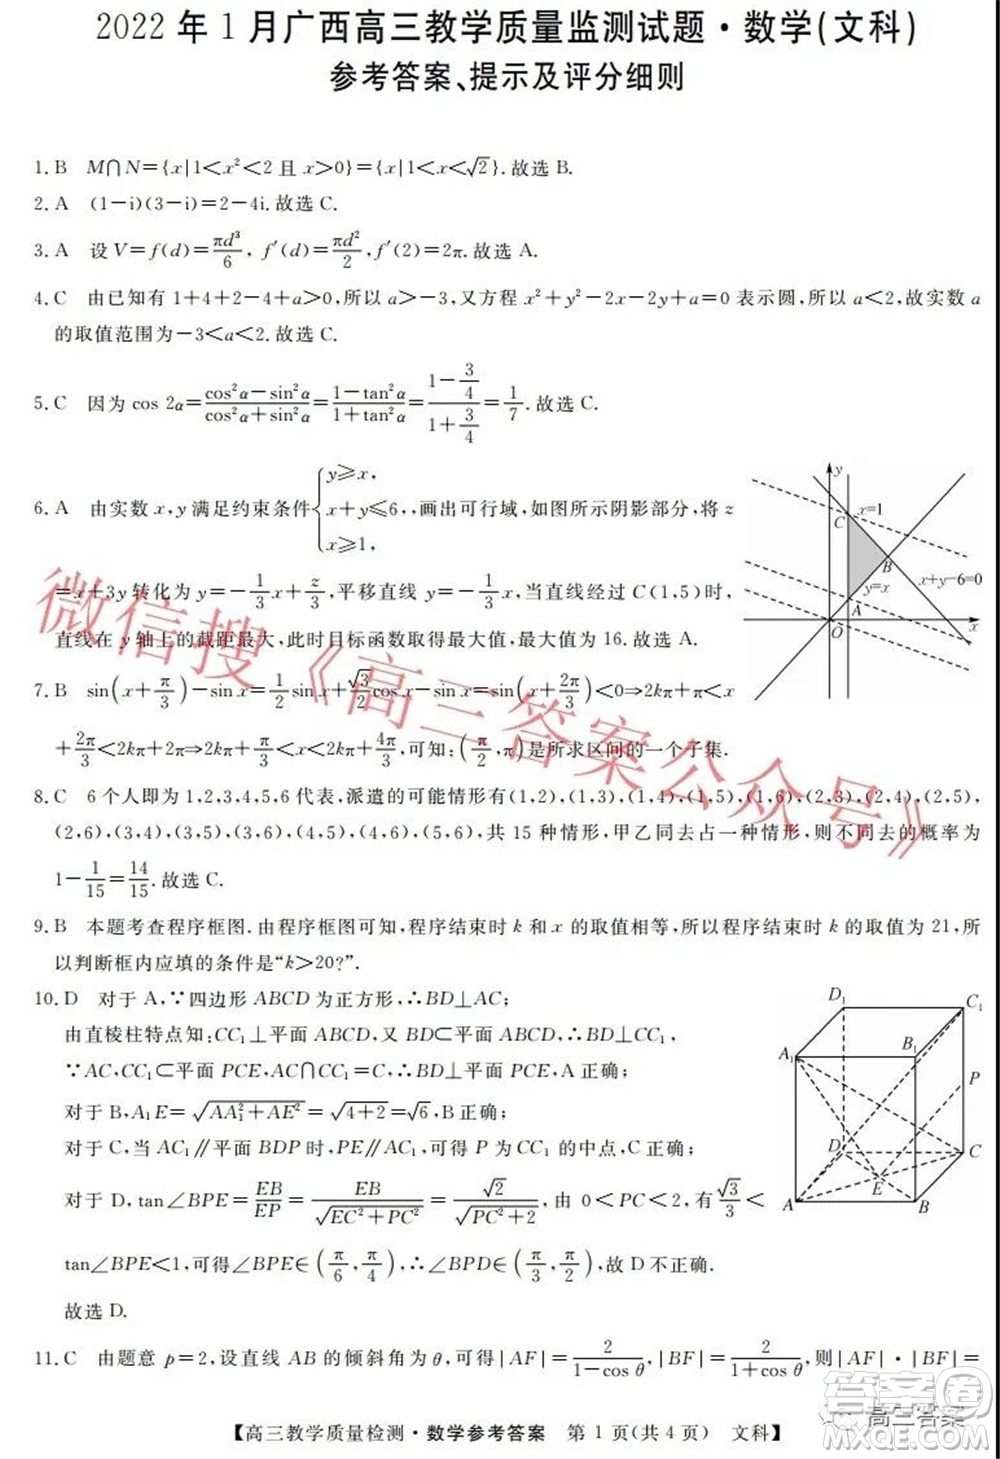 2022 年 1 月广西高三教学质量监测试题·数学(文科)
参考答案、提示及评分细则
1. B M∩N={x|1<x²<2 且 x>0}={x|1<x<√2}.故选 B.
2. A (1-i)(3-i)=2-4i.故选 C.
3. A 设 V=f(d)=πd³/6, f′(d)=πd²/2, f′(2)=2π.故选 A.
4. C 由已知有 1+4+2-4+a>0,所以 a>-3,又方程 x²+y²-2x-2y+a=0 表示圆,所以 a<2,故实数 a
的取值范围为-3<a<2.故选 C.
5. C 因为 cos 2α=(cos²α-sin²α)/(cos²α+sin²α)=(1-tan²α)/(1+tan²α)=(1-3/4)/(1+3/4)=1/7.故选 C.
6. A 由实数 x,y 满足约束条件{y≥x, x+y≤6, x≥1,,画出可行域,如图所示阴影部分,将 z
=x+3y 转化为 y=-1/3x+z/3,平移直线 y=-1/3x,当直线经过 C(1,5)时,
直线在 y 轴上的截距最大,此时目标函数取得最大值,最大值为 16.故选 A.
y
x=1
C
B
x+y-6=0
y=x
A
O
x
7. B sin(x+π/3)-sin x=1/2 sin x+√3/2 cos x-sin x=sin(x+2π/3)<0⇒2kπ+π<x
+2π/3<2kπ+2π⇒2kπ+π/3<x<2kπ+4π/3,可知:(π/2,π)是所求区间的一个子集.
8. C 6 个人即为 1,2,3,4,5,6 代表,派遣的可能情形有(1,2),(1,3),(1,4),(1,5),(1,6),(2,3),(2,4),(2,5),
(2,6),(3,4),(3,5),(3,6),(4,5),(4,6),(5,6),共 15 种情形,甲乙同去占一种情形,则不同去的概率为
1-1/15=14/15.故选 C.
9. B 本题考查程序框图.由程序框图可知,程序结束时 k 和 x 的取值相等,所以程序结束时 k 的取值为 21,所
以判断框内应填的条件是“k>20?”.
10. D 对于 A,∵四边形 ABCD 为正方形,∴BD⊥AC;
由直棱柱特点知:CC₁⊥平面 ABCD,又 BD⊂平面 ABCD,∴BD⊥CC₁,
∵AC,CC₁⊂平面 PCE,AC∩CC₁=C,∴BD⊥平面 PCE,A 正确;
对于 B,A₁E=√(AA₁²+AE²)=√(4+2)=√6,B 正确;
对于 C,当 AC₁∥平面 BDP 时,PE∥AC₁,可得 P 为 CC₁ 的中点,C 正确;
对于 D,tan∠BPE=EB/EP=EB/√(EC²+PC²)=√2/√(PC²+2),由 0<PC<2,有 √3/3<
tan∠BPE<1,可得∠BPE∈(π/6,π/4),∴∠BPD∈(π/3,π/2),故 D 不正确.
故选 D.
D₁
C₁
A₁
B₁
P
D
C
E
A
B
11. C 由题意 p=2,设直线 AB 的倾斜角为 θ,可得|AF|=2/(1-cos θ),|BF|=2/(1+cos θ),则|AF|·|BF|=
【高三教学质量检测·数学参考答案 第 1 页(共 4 页) 文科】
微信搜《高三答案公众号》
高三答案
答案圈
MXQE.COM